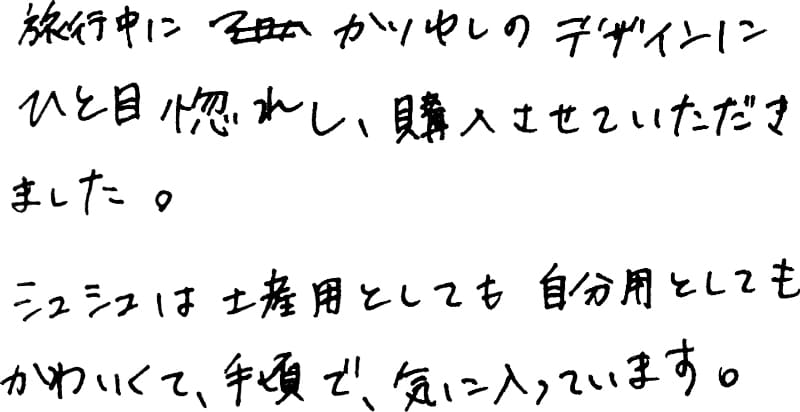 旅行中に かりゆしの デザインに
ひと目惚れし、購入させていただき
ました。
シュシュは土産用としても 自分用としても
かわいくて、手頃で、気に入っています。